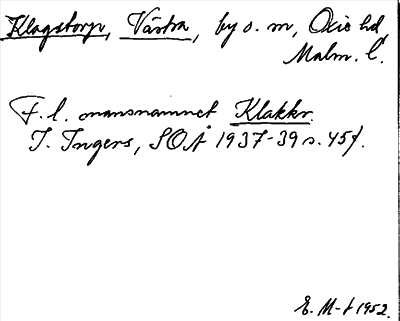 Klagstorp, Västra, by o. sn, Oxie hd,
Malm. l.
F. l. mansnamnet Klakkr.
I. Ingers, SOÅ 1937-39 s. 45f.
E. M-t 1952.